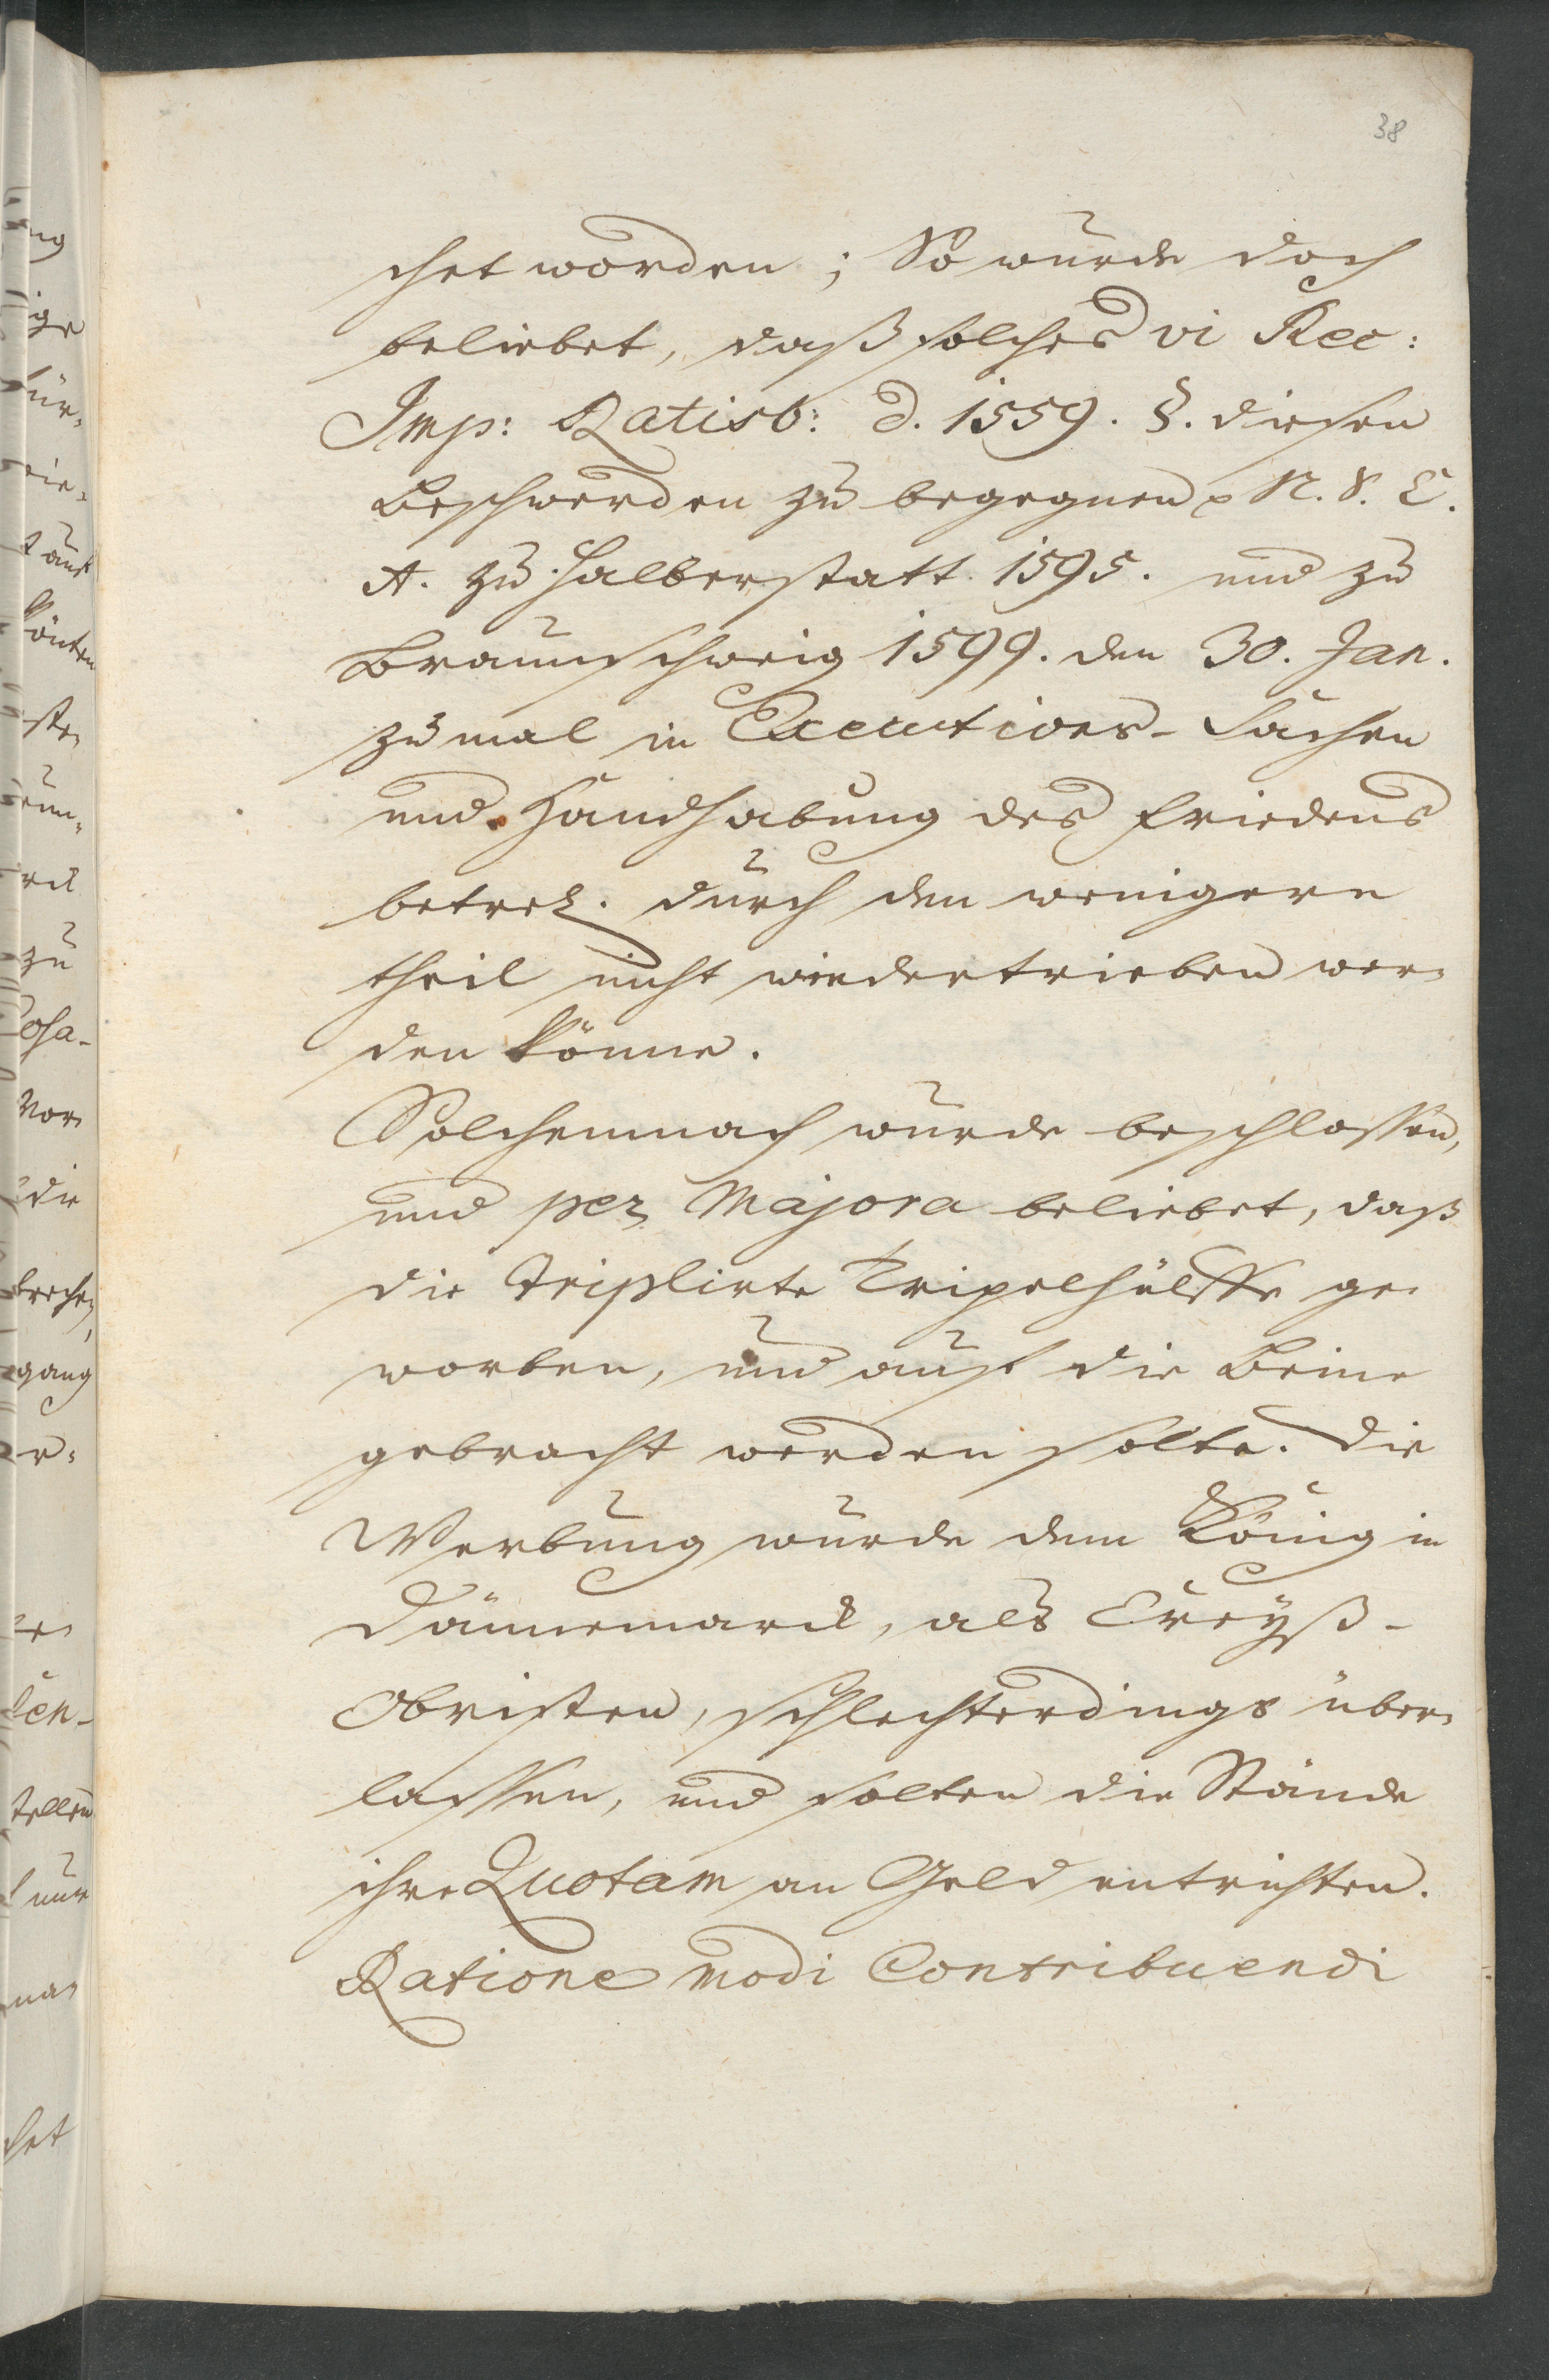 38
chet worden; So wurde doch
beliebet, daß solches vi Rec:
Imp: Ratisb: d. 1559. §. diesen
Beschwerden zu begegnen p N. S. C.
A. zu Halberstatt. 1595. und zu
Braunschweig 1599. den 30. Jan.
zumal in Executions-Sachen
und Handhabung des Friedens
betref. durch den wenigern
theil nicht wiedertrieben wer-
den könne.
Solchemnach wurde beschlossen,
und per Majora beliebet, daß
die triplirte Tripelhülffe ge-
worben, und auf die Beine
gebracht werden solte. Die
Werbung wurde dem König in
Dännemarck, als Creyß-
Obristen, schlechterdings über-
lassen, und solten die Stände
ihre Quotam an Geld entrichten.
Ratione modi Contribuendi